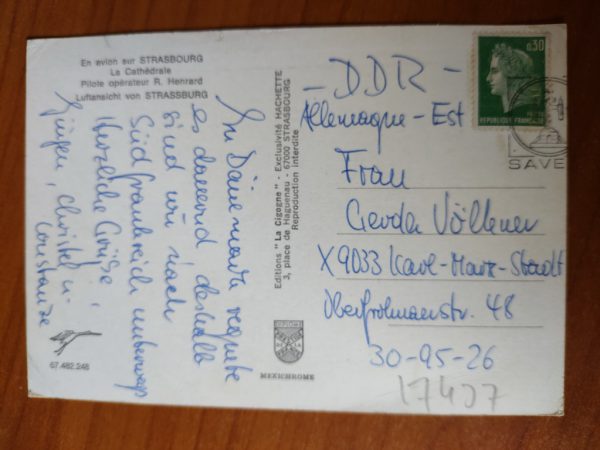 En avion sur STRASBOURG
La Cathédrale
Pilote opérateur R. Henrard
Luftansicht von STRASSBURG
In Dänemark regnete
es dauernd deshalb
sind wir nach
Südfrankreich unterwegs
Herzliche Grüße,
Jürgen, Christel u.
Constanze
67.482.248
Editions "La Cigogne" - Exclusivité HACHETTE
3, place de Haguenau - 67000 STRASBOURG
Reproduction interdite
MEXICHROME
0,30
REPUBLIQUE FRANÇAISE
SAVE
- DDR -
Allemagne - Est
Frau
Gerda Völkner
X 9033 Karl-Marx-Stadt
48
30-95-26
17407